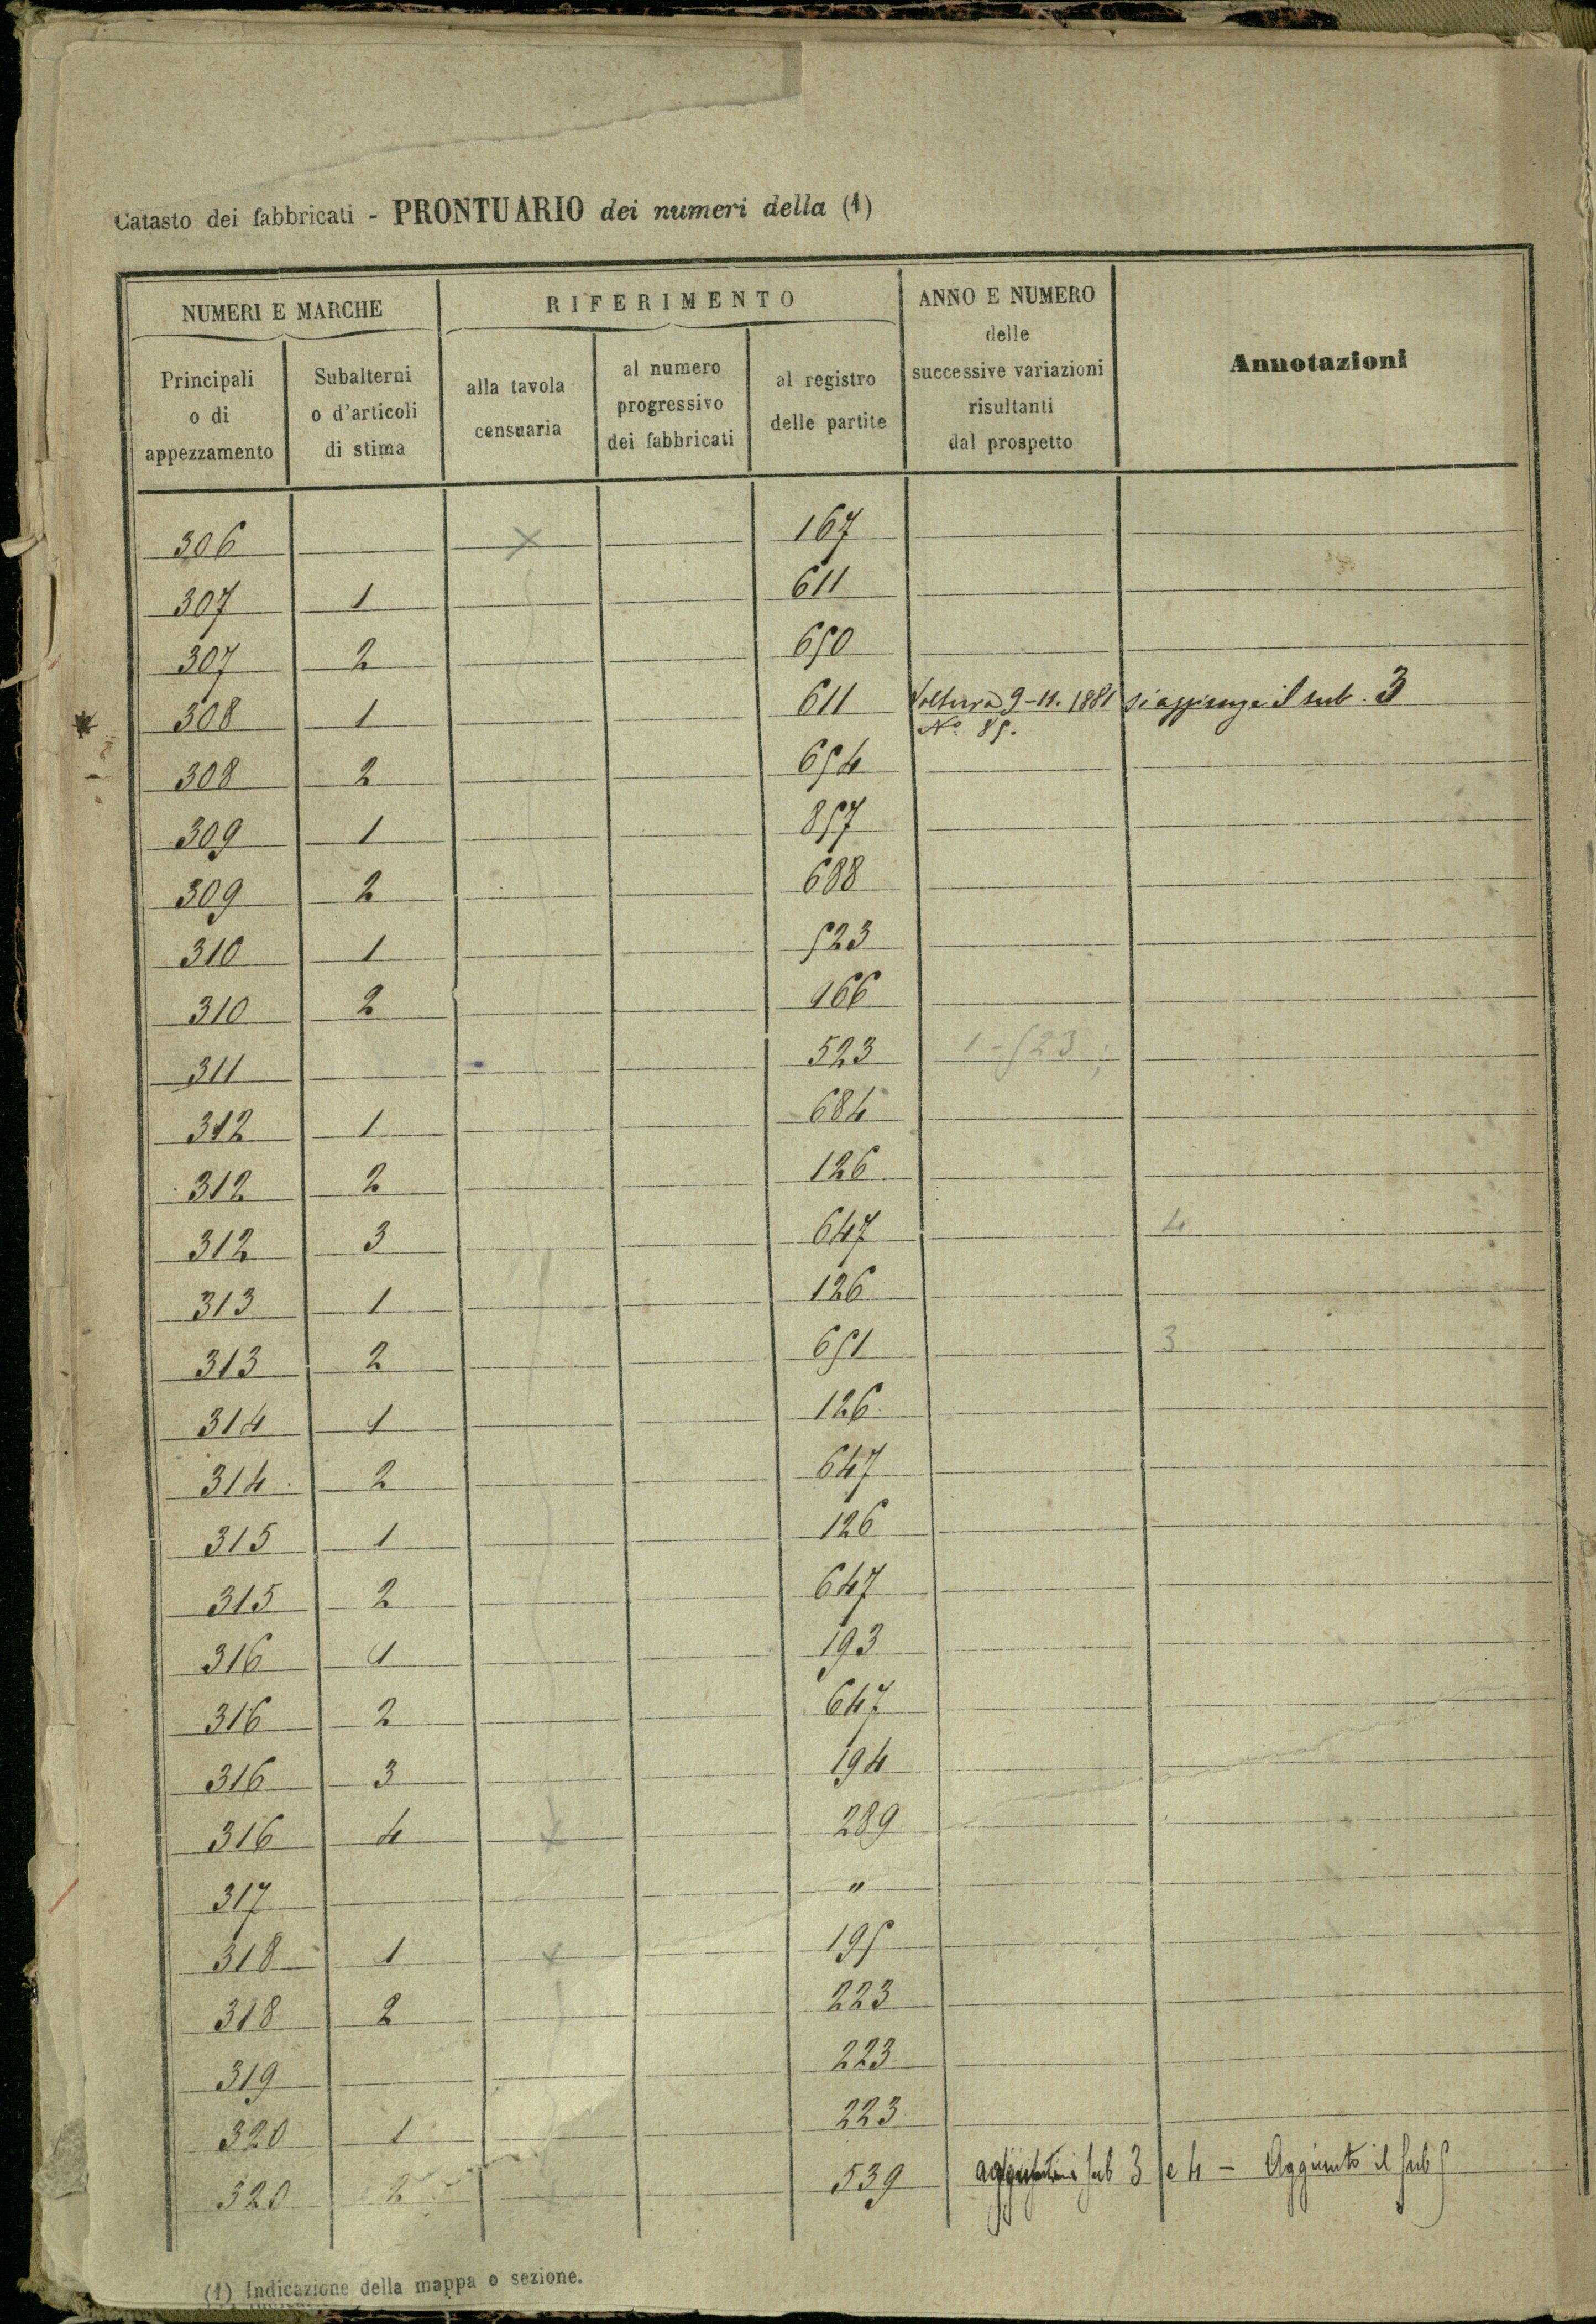 Catasto dei fabbricati - PRONTUARIO dei numeri della (1)
NUMERI E MARCHE
RIFERIMENTO
ANNO E NUMERO
delle
successive variazioni
risultanti
dal prospetto
Annotazioni
Principali
o di
appezzamento
Subalterni
o d'articoli
di stima
alla tavola
censuaria
al numero
progressivo
dei fabbricati
al registro
delle partite
306 × 167
307 1 611
307 2 650
308 1 611 Voltura 9-11.1881 si aggiunge il sub. 3
N.° 85.
308 2 654
309 1 857
309 2 688
310 1 523
310 2 966
311 523 1-523
312 1 684
312 2 126
312 3 647 4
313 1 126
313 2 651 3
314 1 126
314 2 647
315 1 126
315 2 647
316 1 193
316 2 647
316 3 194
316 4 × 289
317 "
318 1 × 195
318 2 223
319 223
320 1 223
320 2 539 aggiunti i sub 3 e 4 - Aggiunto il sub 5
(1) Indicazione della mappa o sezione.